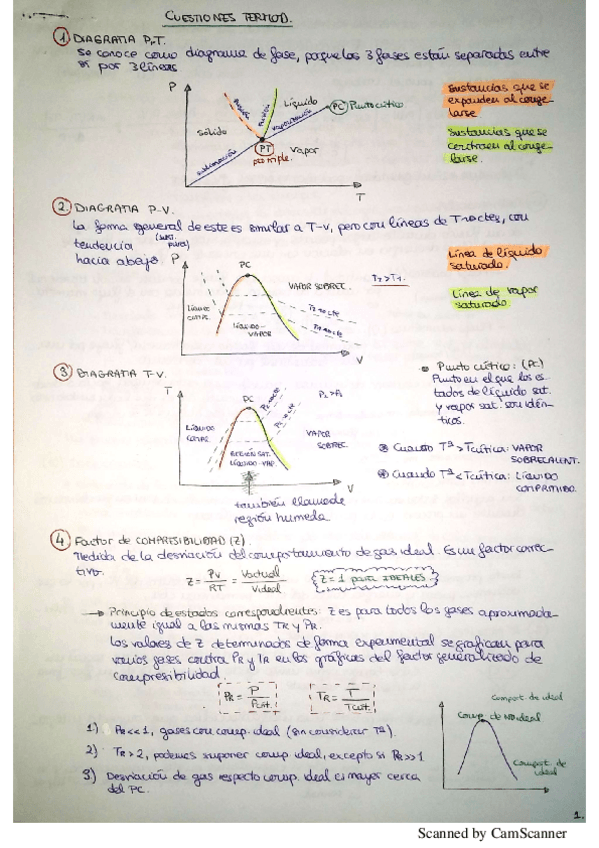 CUESTIONES TERMOD.
1 DIAGRAMA P,T.
se conoce como diagrama de fase, porque las 3 fases están separadas entre
sí por 3 líneas
P
fusión
fusión
Líquido
PC Punto crítico
vaporización
sólido
sublimación
PT
pto triple.
vapor
T
Sustancias que se
expanden al conge-
larse
Sustancias que se
contraen al conge-
larse.
2. DIAGRAMA P-V.
La forma general de este es similar a T-V, pero con líneas de T=ctes, con
tendencia (sust. pura)
hacia abajo
P
PC
VAPOR SOBREC.
T2>T1.
LÍQUIDO
COMPR.
LÍQUIDO-
VAPOR
T2=cte
T1=cte
V
Línea de líquido
saturado.
Línea de vapor
saturado.
3 DIAGRAMA T-V.
T
PC
P2=cte
P1=cte
P2>P1
LÍQUIDO
COMPR.
VAPOR
SOBREC.
REGIÓN SAT.
LÍQUIDO-VAP.
V
también llamada
región húmeda
Punto crítico: (PC)
Punto en el que los es-
tados de líquido sat.
y vapor sat. son idén-
ticos.
Cuando Tª>Tcrítica: VAPOR
SOBRECALENT.
Cuando Tª<Tcrítica: LÍQUIDO
COMPRIMIDO.
4 Factor de COMPRESIBILIDAD (Z).
Medida de la desviación del comportamiento de gas ideal. Es un factor correc-
tivo.
Z = Pv/RT = Vactual/Videal
Z=1 para IDEALES
→ Principio de estados correspondientes: Z es para todos los gases aproximada-
mente igual a las mismas TR y PR.
Los valores de Z determinados de forma experimental se grafican para
varios gases contra PR y TR en las gráficas del factor generalizado de
compresibilidad.
PR = P/Pcrit.
TR = T/Tcrit.
1) PR<<1, gases con comp. ideal (sin considerar Tª).
2) TR>2, podemos suponer comp. ideal, excepto si PR>>1
3) Desviación de gas respecto comp. ideal es mayor cerca
del PC.
Comport. de ideal
Comp. de NO ideal
Comport. de
ideal
1.
Scanned by CamScanner